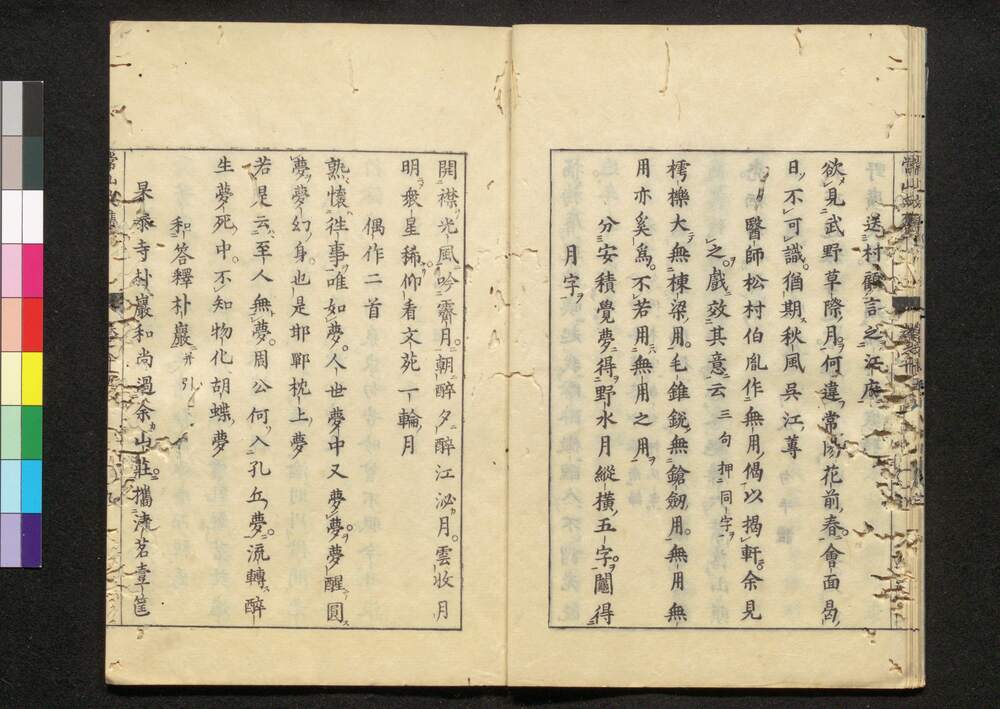 送村顧言之江府
欲見武野草際月何違常陽花前春會面曷
日不可識猶期秋風呉江蓴
醫師松村伯胤作無用偈以揭軒余見
之戲效其意云三句押同字
樗櫟大無棟梁用毛錐銳無鎗劒用無用無
用亦奚爲不若用無用之用
分安積覺夢得野水月縱橫五字鬮得
月字
開襟光風吟霽月朝醉夕醉江泌月雲收月
明衆星稀仰看文苑一輪月
偶作二首
熟懷往事唯如夢人世夢中又夢夢夢醒圓
夢夢幻身也是邯鄲枕上夢
若是云至人無夢周公何入孔丘夢流轉醉
生夢死中不知物化胡蝶夢
和答釋朴巖并引
杲泰寺朴巖和尚過余山莊攜流茗壹筐